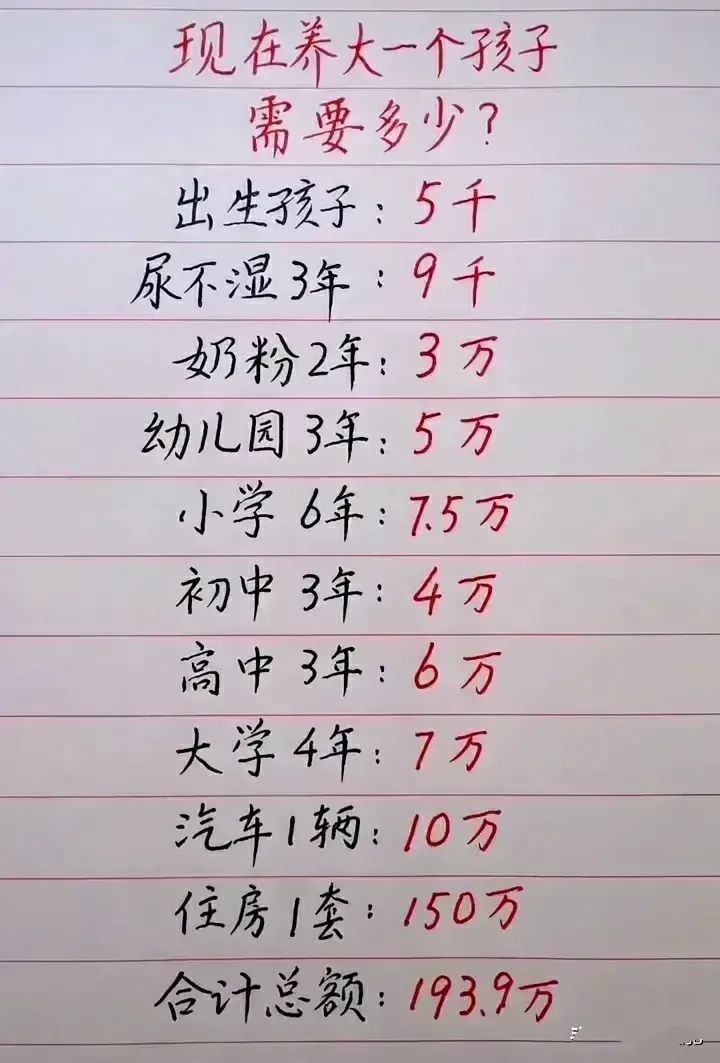 现在养大一个孩子
需要多少?
出生孩子:5千
尿不湿3年:9千
奶粉2年:3万
幼儿园3年:5万
小学6年:7.5万
初中3年:4万
高中3年:6万
大学4年:7万
汽车1辆:10万
住房1套:150万
合计总额:193.9万